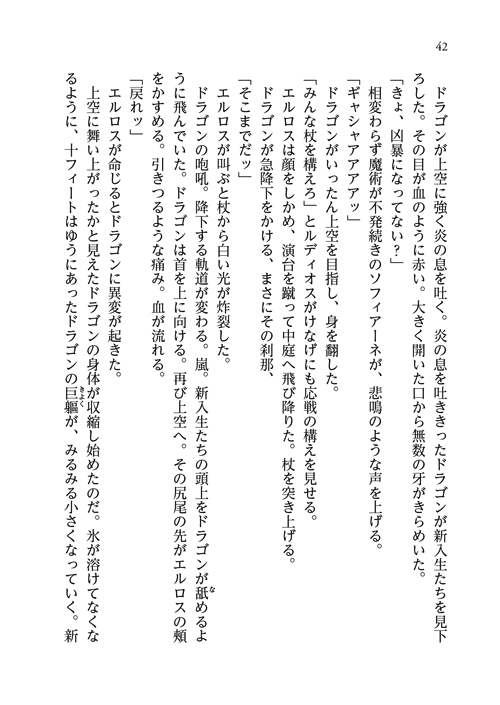 42
　ドラゴンが上空に強く炎の息を吐く。炎の息を吐ききったドラゴンが新入生たちを見下
ろした。その目が血のように赤い。大きく開いた口から無数の牙がきらめいた。
「きょ、凶暴になってない？」
　相変わらず魔術が不発続きのソフィアーネが、悲鳴のような声を上げる。
「ギャシャアアアアッ」
　ドラゴンがいったん上空を目指し、身を翻した。
「みんな杖を構えろ」とルディオスがけなげにも応戦の構えを見せる。
　エルロスは顔をしかめ、演台を蹴って中庭へ飛び降りた。杖を突き上げる。
　ドラゴンが急降下をかける、まさにその刹那、
「そこまでだッ」
　エルロスが叫ぶと杖から白い光が炸裂した。
　ドラゴンの咆吼。降下する軌道が変わる。嵐。新入生たちの頭上をドラゴンが舐めるよ
うに飛んでいた。ドラゴンは首を上に向ける。再び上空へ。その尻尾の先がエルロスの頬
をかすめる。引きつるような痛み。血が流れる。
「戻れッ」
　エルロスが命じるとドラゴンに異変が起きた。
　上空に舞い上がったかと見えたドラゴンの身体が収縮し始めたのだ。氷が溶けてなくな
るように、十フィートはゆうにあったドラゴンの巨軀が、みるみる小さくなっていく。新
な
きょく